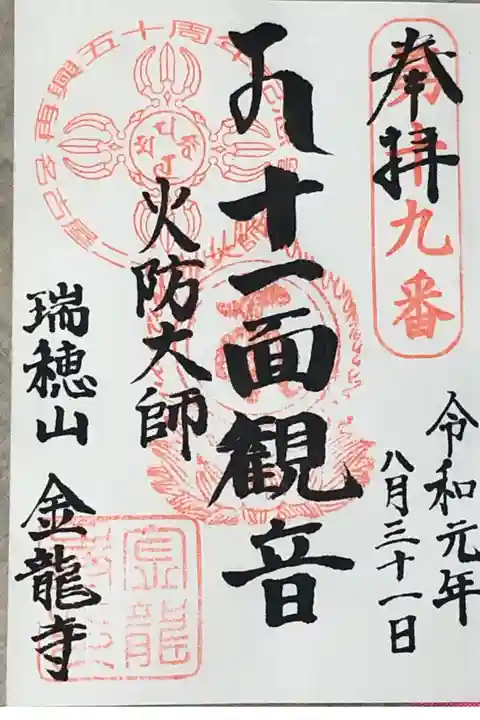 奉拝
第十九番
令和元年
八月三十一日
十一面観音
火防大師
瑞穂山 金龍寺
五十周年
金龍